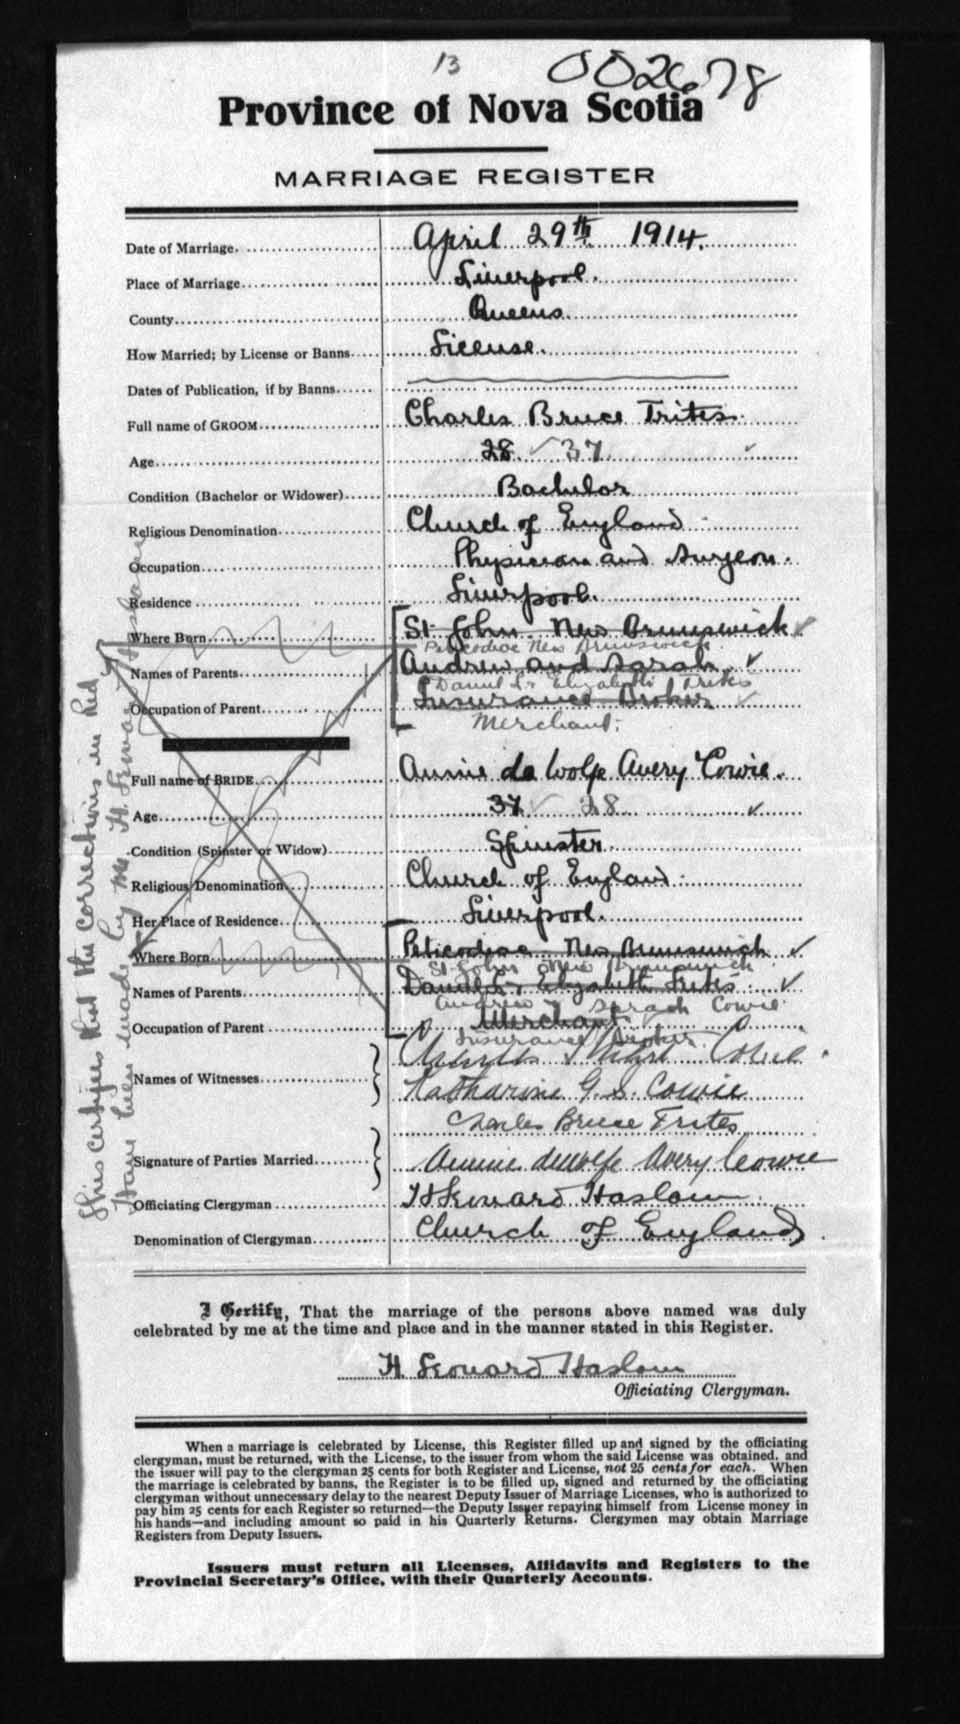 13
002678
Province of Nova Scotia
MARRIAGE REGISTER
Date of Marriage. April 29th 1914.
Place of Marriage Liverpool.
County Queens
How Married; by License or Banns License.
Dates of Publication, if by Banns
Full name of GROOM Charles Bruce Trites.
Age 28 37
Condition (Bachelor or Widower) Bachelor
Religious Denomination Church of England
Occupation Physician and Surgeon.
Residence Liverpool.
Where Born St John. New Brunswick
Peticodiac New Brunswick
Names of Parents Andrew and Sarah
Daniel L. Elizabeth Trites
Occupation of Parent Insurance Broker
Merchant.
Full name of BRIDE Annie de Wolfe Avery Cowie.
Age 37 28
Condition (Spinster or Widow) Spinster
Religious Denomination Church of England
Her Place of Residence Liverpool.
Where Born Peticodiac New Brunswick
St John New Brunswick
Names of Parents Daniel L. Elizabeth Trites
Andrew Sarah Cowie
Occupation of Parent Merchant
Insurance Broker.
Names of Witnesses Cowie
Katharine G. S. Cowie
Charles Bruce Trites
Signature of Parties Married Annie dewolfe Avery Cowie
Officiating Clergyman H Leonard Haslam
Denomination of Clergyman Church of England
This certifies that the corrections in Red
Have been made by me H. Leonard Haslam
I Certify, That the marriage of the persons above named was duly
celebrated by me at the time and place and in the manner stated in this Register.
H. Leonard Haslam
Officiating Clergyman.
When a marriage is celebrated by License, this Register filled up and signed by the officiating
clergyman, must be returned, with the License, to the issuer from whom the said License was obtained, and
the issuer will pay to the clergyman 25 cents for both Register and License, not 25 cents for each. When
the marriage is celebrated by banns, the Register is to be filled up, signed and returned by the officiating
clergyman without unnecessary delay to the nearest Deputy Issuer of Marriage Licenses, who is authorized to
pay him 25 cents for each Register so returned—the Deputy Issuer repaying himself from License money in
his hands—and including amount so paid in his Quarterly Returns. Clergymen may obtain Marriage
Registers from Deputy Issuers.
Issuers must return all Licenses, Affidavits and Registers to the
Provincial Secretary's Office, with their Quarterly Accounts.